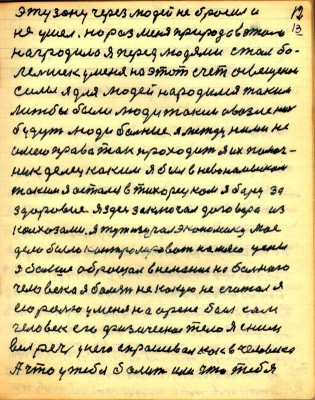 эту зону через людей не бросил и 12
не ушел. но раз меня природа в этом 13
наградила я перед людями стал бо-
лел и ск у меня на этот счет освещение
силы я для людей народился таким
лиж бы были люди таким а возле них
будут люди больные я между ними не
имею права так проходит я их помоч-
ник делец каким я был в невономыском
таким я остался в тихорецком я борец за
здоровье. я здесь заключал договора из
колхозами. я тут изучал экономику мое
дело было контролировать на мясо цены
я больше обращал внимание на больного
человека я болезь не какую не считал я
ею ролю у меня на арене был сам
человек его физическое тело я с ним
вел речь у него спрашивал как в человека
А что у тебя болит или что тебя